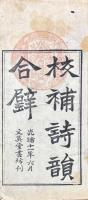 校補詩韻
合璧
光緒十一年六月
文英堂書坊刊